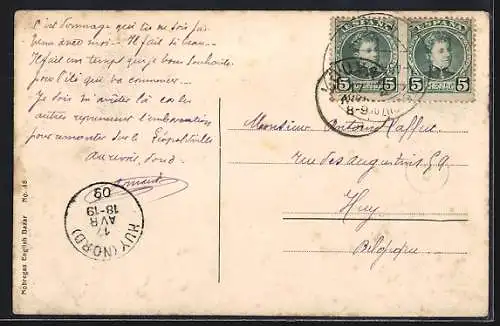 C'est dommage que tu ne sois pas
venu avec moi - Il fait si beau -
Il fait un temps que je vous souhaite
pour l'été qui va commencer -
Je vais m'arrêter là car les
autres reprennent l'embarcation
pour remonter sur le Léopoldville
Au revoir,
ESPAÑA
ESPAÑA
5 5
5 5
Monsieur Antoine Raffer
rue des augustins 9
Huy
Belgique
HUY (NORD)
17
AVR
18-19
09
Nobregas English Bazar No. 48